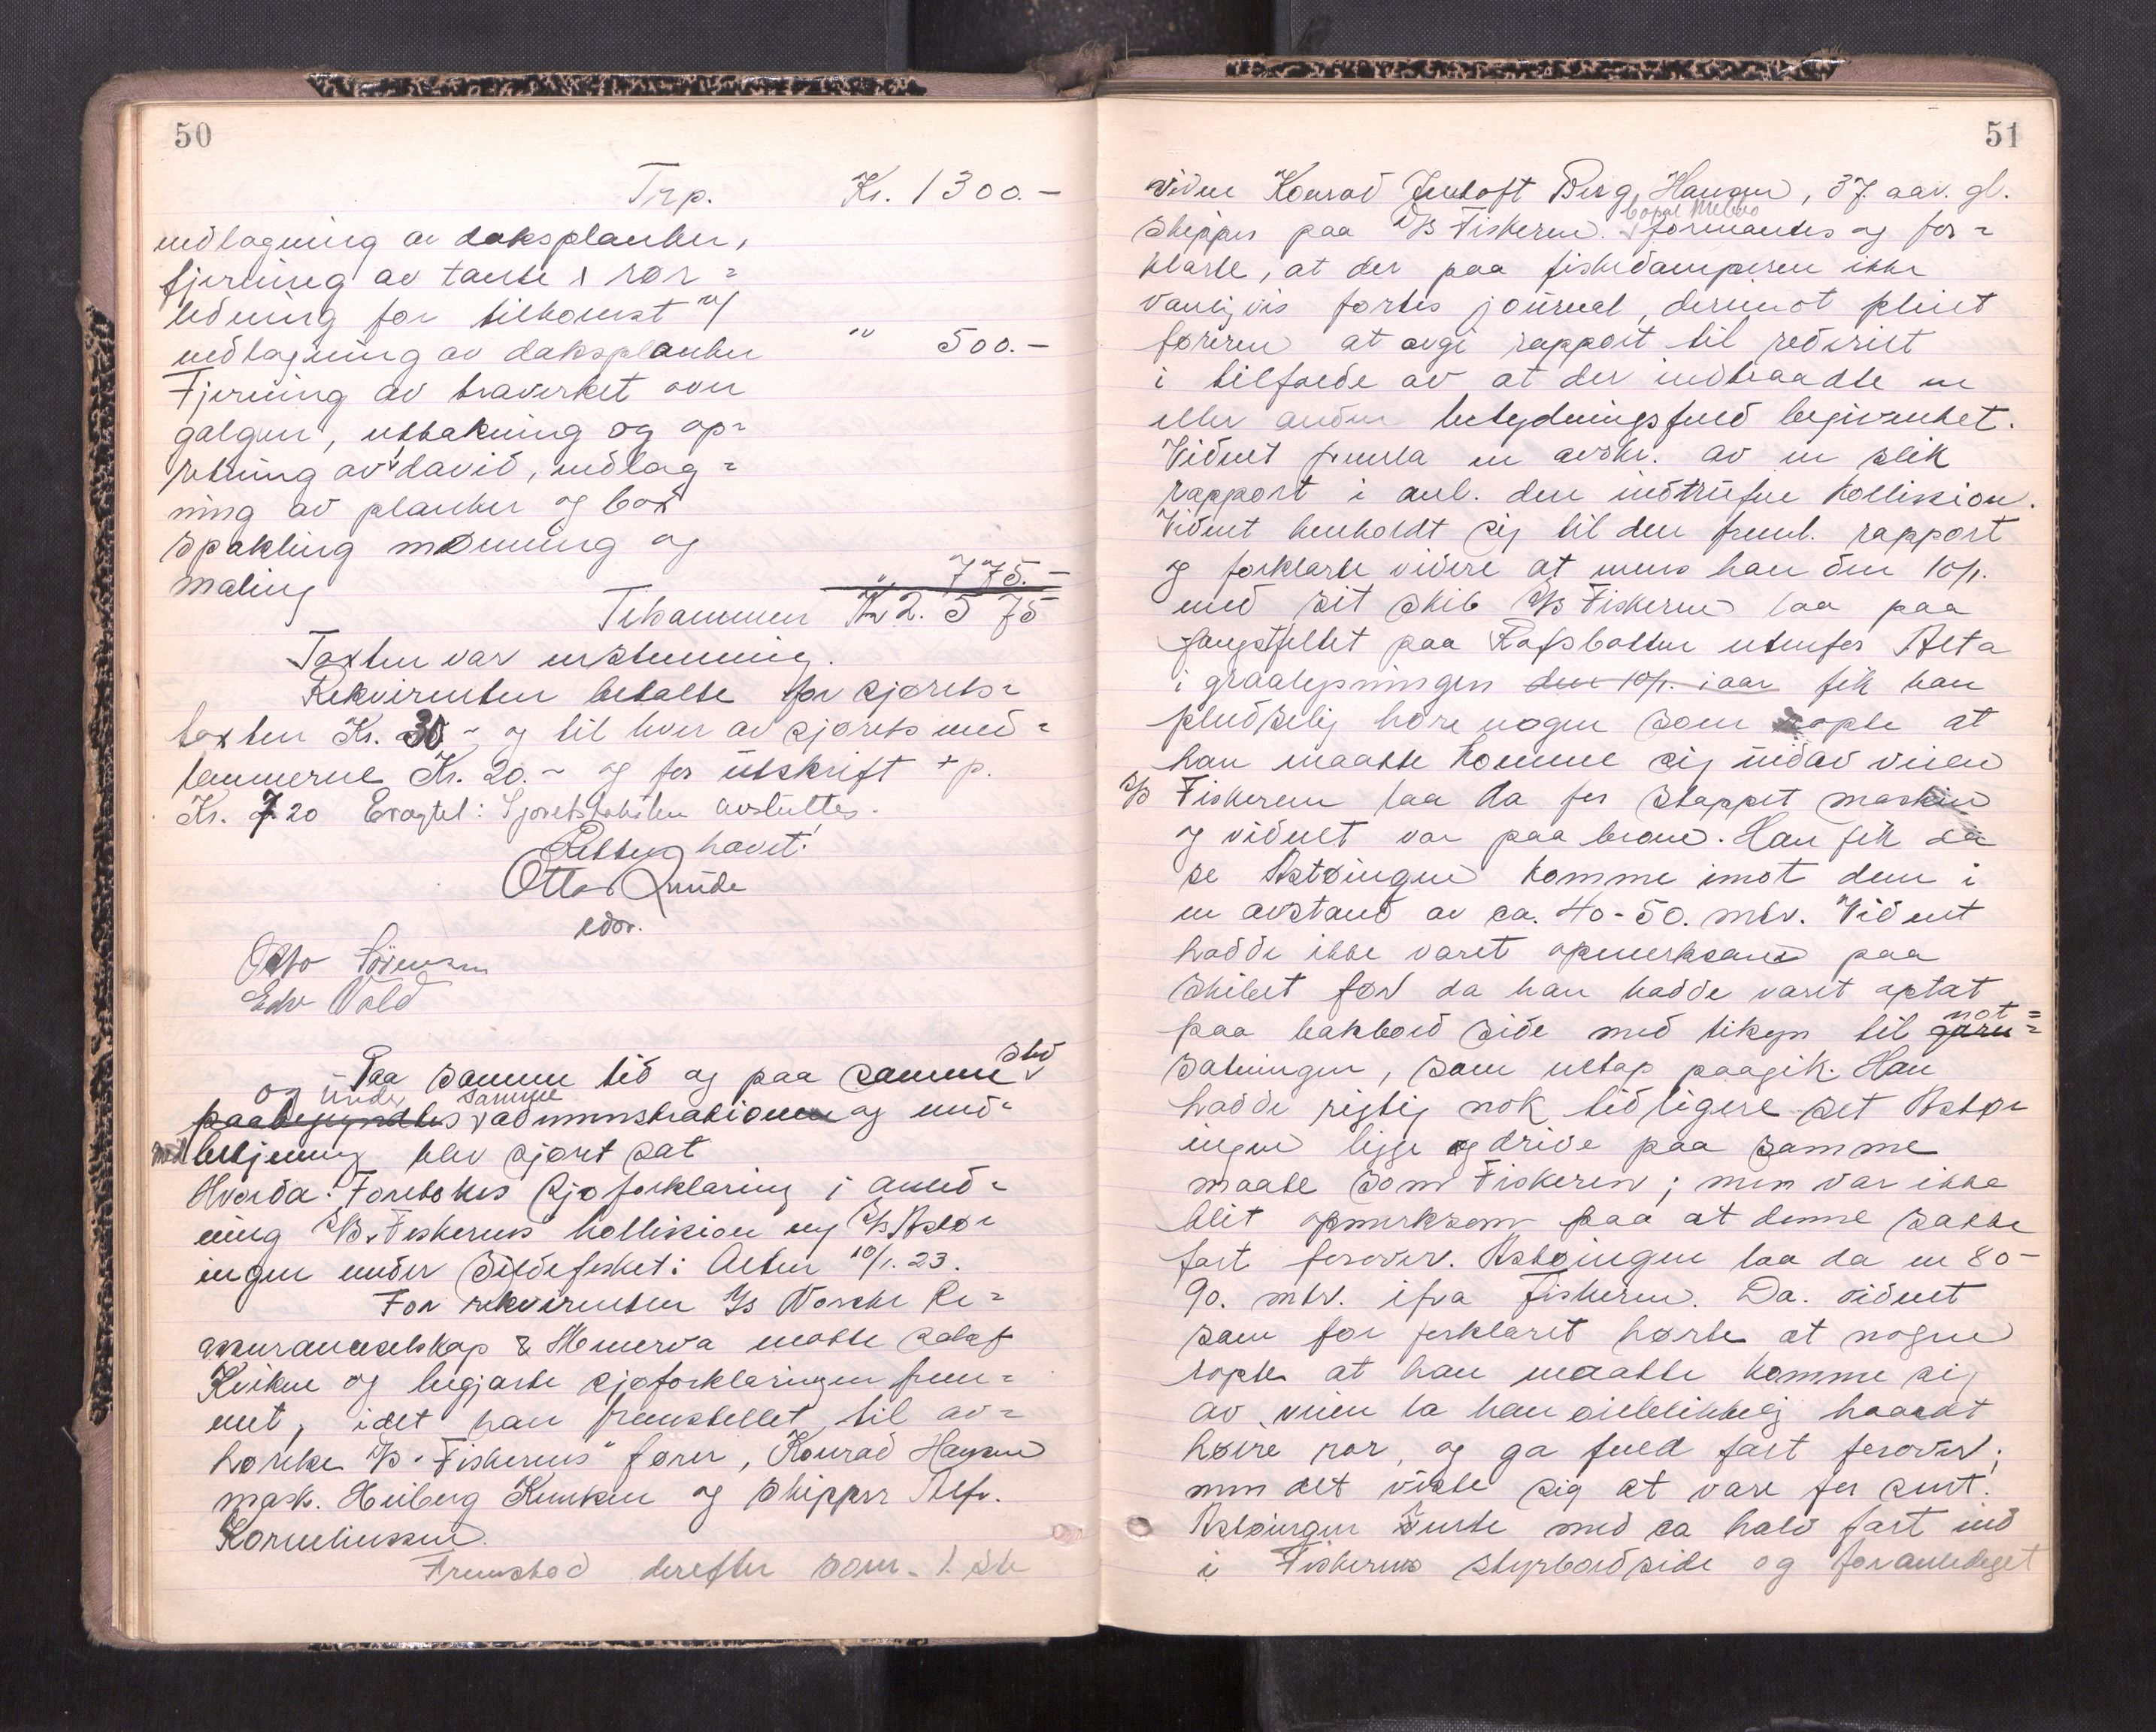 50
Trp. Kr. 1300.-
indlagning av daksplanker,
fjerning av tanke & rør=
ledning for tilkomst av
indlagning av daksplanker " 500.-
Fjerning av traverket over
galgen, utbakning og op=
retning av david, indlag=
ning av planker og bor
spakling mønning og
maling " 775.-
Tilsammen Kr 2.575
Taxten var enstemmig.
Rekvirenten betalte for sjørets=
taxten Kr. 30- og til hver av sjørets med=
lemmerne Kr. 20.- og for utskrift + p.
Kr. 7 20 Sjøretstaksten avsluttes.
Retten hævet!
Otto Lunde
edsv.
Otto Sörensen
Edv Vold
Paa samme tid og paa samme sted
og under samme
paabegyndtes administration og med=
betjening blev sjøret sat
Hvorda: Foretokes sjøforklaring i anled=
ning S/S. Fiskerens kollision m/ S/S Astø=
ingen under sildefisket i Alten 10/1. 23.
For rekvirenten I/S Norske Re=
assuranceselskap & Minerva møtte
og begjærte sjøforklaringen frem=
met, idet han fremstillet til av=
hørelse S/S "Fiskerens" fører, Konrad Hansen
mask. Heiberg Knutsen og skipper Alfr.
Korneliussen.
Fremstod derefter som 1. ste
51
vidne Konrad Berg Hansen, 37 aar. gl.
skipper paa S/S Fiskeren. formantes og for=
klarte, at der paa fiskedamperen ikke
vanligvis førtes journal, derimot pleiet
føreren at avgi rapport til rederiet
i tilfælde av at der indtraadte en
eller anden betydningsfuld begivenhet.
Vidnet fremla en avskr. av en slik
rapport i anl. den indtrufne kollision.
Vidnet henholdt sig til den freml. rapport
og forklarte videre at mens han den 10/1.
med sit skib S/S Fiskeren laa paa
fangstfeltet paa Rafsbotten utenfor Alta
i graalysningen den 10/1. iaar fik han
pludselig høre nogen som ropte at
han maatte komme sig indav veien
S/S Fiskeren laa da for stoppet maskin
og vidnet var paa broen. Han fik da
se Astøingen komme imot dem i
en avstand av ca. 40-50. mtr. Vidnet
hadde ikke været opmerksam paa
skibet før da han hadde været optat
paa bakbord side med tilsyn til garn= not=
sætningen, som netop paagik. Han
hadde rigtig nok tidligere set Astø=
ingen ligge og drive paa samme
maate som Fiskeren; men var ikke
blit opmerksom paa at denne satte
fart forover. Astøingen laa da en 80-
90. mtr. ifra Fiskeren. Da vidnet
som før forklaret hørte at nogen
ropte at han maatte komme sig
av veien la han øieblikkelig haardt
høire ror, og ga fuld fart forover;
men det viste sig at være for sent.
Astøingen rente med ca halv fart ind
i Fiskerens styrbordside og foranlediget